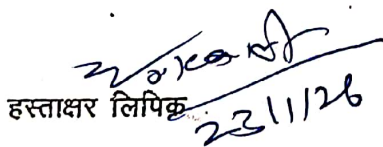 हस्ताक्षर लिपिक
23/1/26